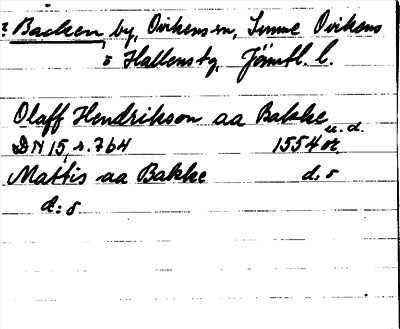 ? Backen, by, Ovikens sn, Sunne Ovikens
o Hallens tg, Jämtl. l.
Olaff Hendrikson aa Bakke
DN 15, s. 764 1554 st. u. d.
Mattis aa Bakke d:o
d:o